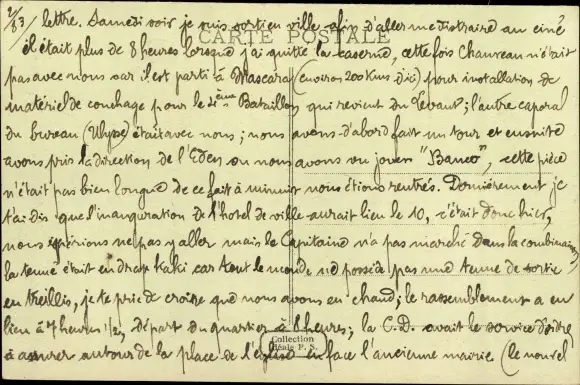 2/83 lettre. Samedi soir je suis sorti en ville afin d'aller me distraire au ciné
CARTE POSTALE
il était plus de 8 heures lorsque j'ai quitté la caserne, cette fois Chauveau n'était
pas avec nous car il est parti à Mascara (environ 200 Kms d'ici) pour installation de
matériel de couchage pour le 4ème Bataillon qui revient du Levant; l'autre caporal
du bureau (Ulysse) était avec nous; nous avons d'abord fait un tour et ensuite
avons pris la direction de l'Eden ou nous avons vu jouer "Banco", cette pièce
n'était pas bien longue de ce fait à minuit nous étions rentrés. Dernièrement je
t'ai dis que l'inauguration de l'hotel de ville aurait lieu le 10, c'était donc hier,
nous espérions ne pas y aller mais le Capitaine n'a pas marché dans la combinaison,
la tenue était en drap kaki car tout le monde ne possède pas une tenue de sortie
en treillis, je te prie de croire que nous avons eu chaud; le rassemblement a eu
lieu à 7 heures 1/2, départ du quartier à 8 heures; la C.D. avait le service d'ordre
à assurer autour de la place de l'église en face l'ancienne mairie (le nouvel
Collection
P. S.